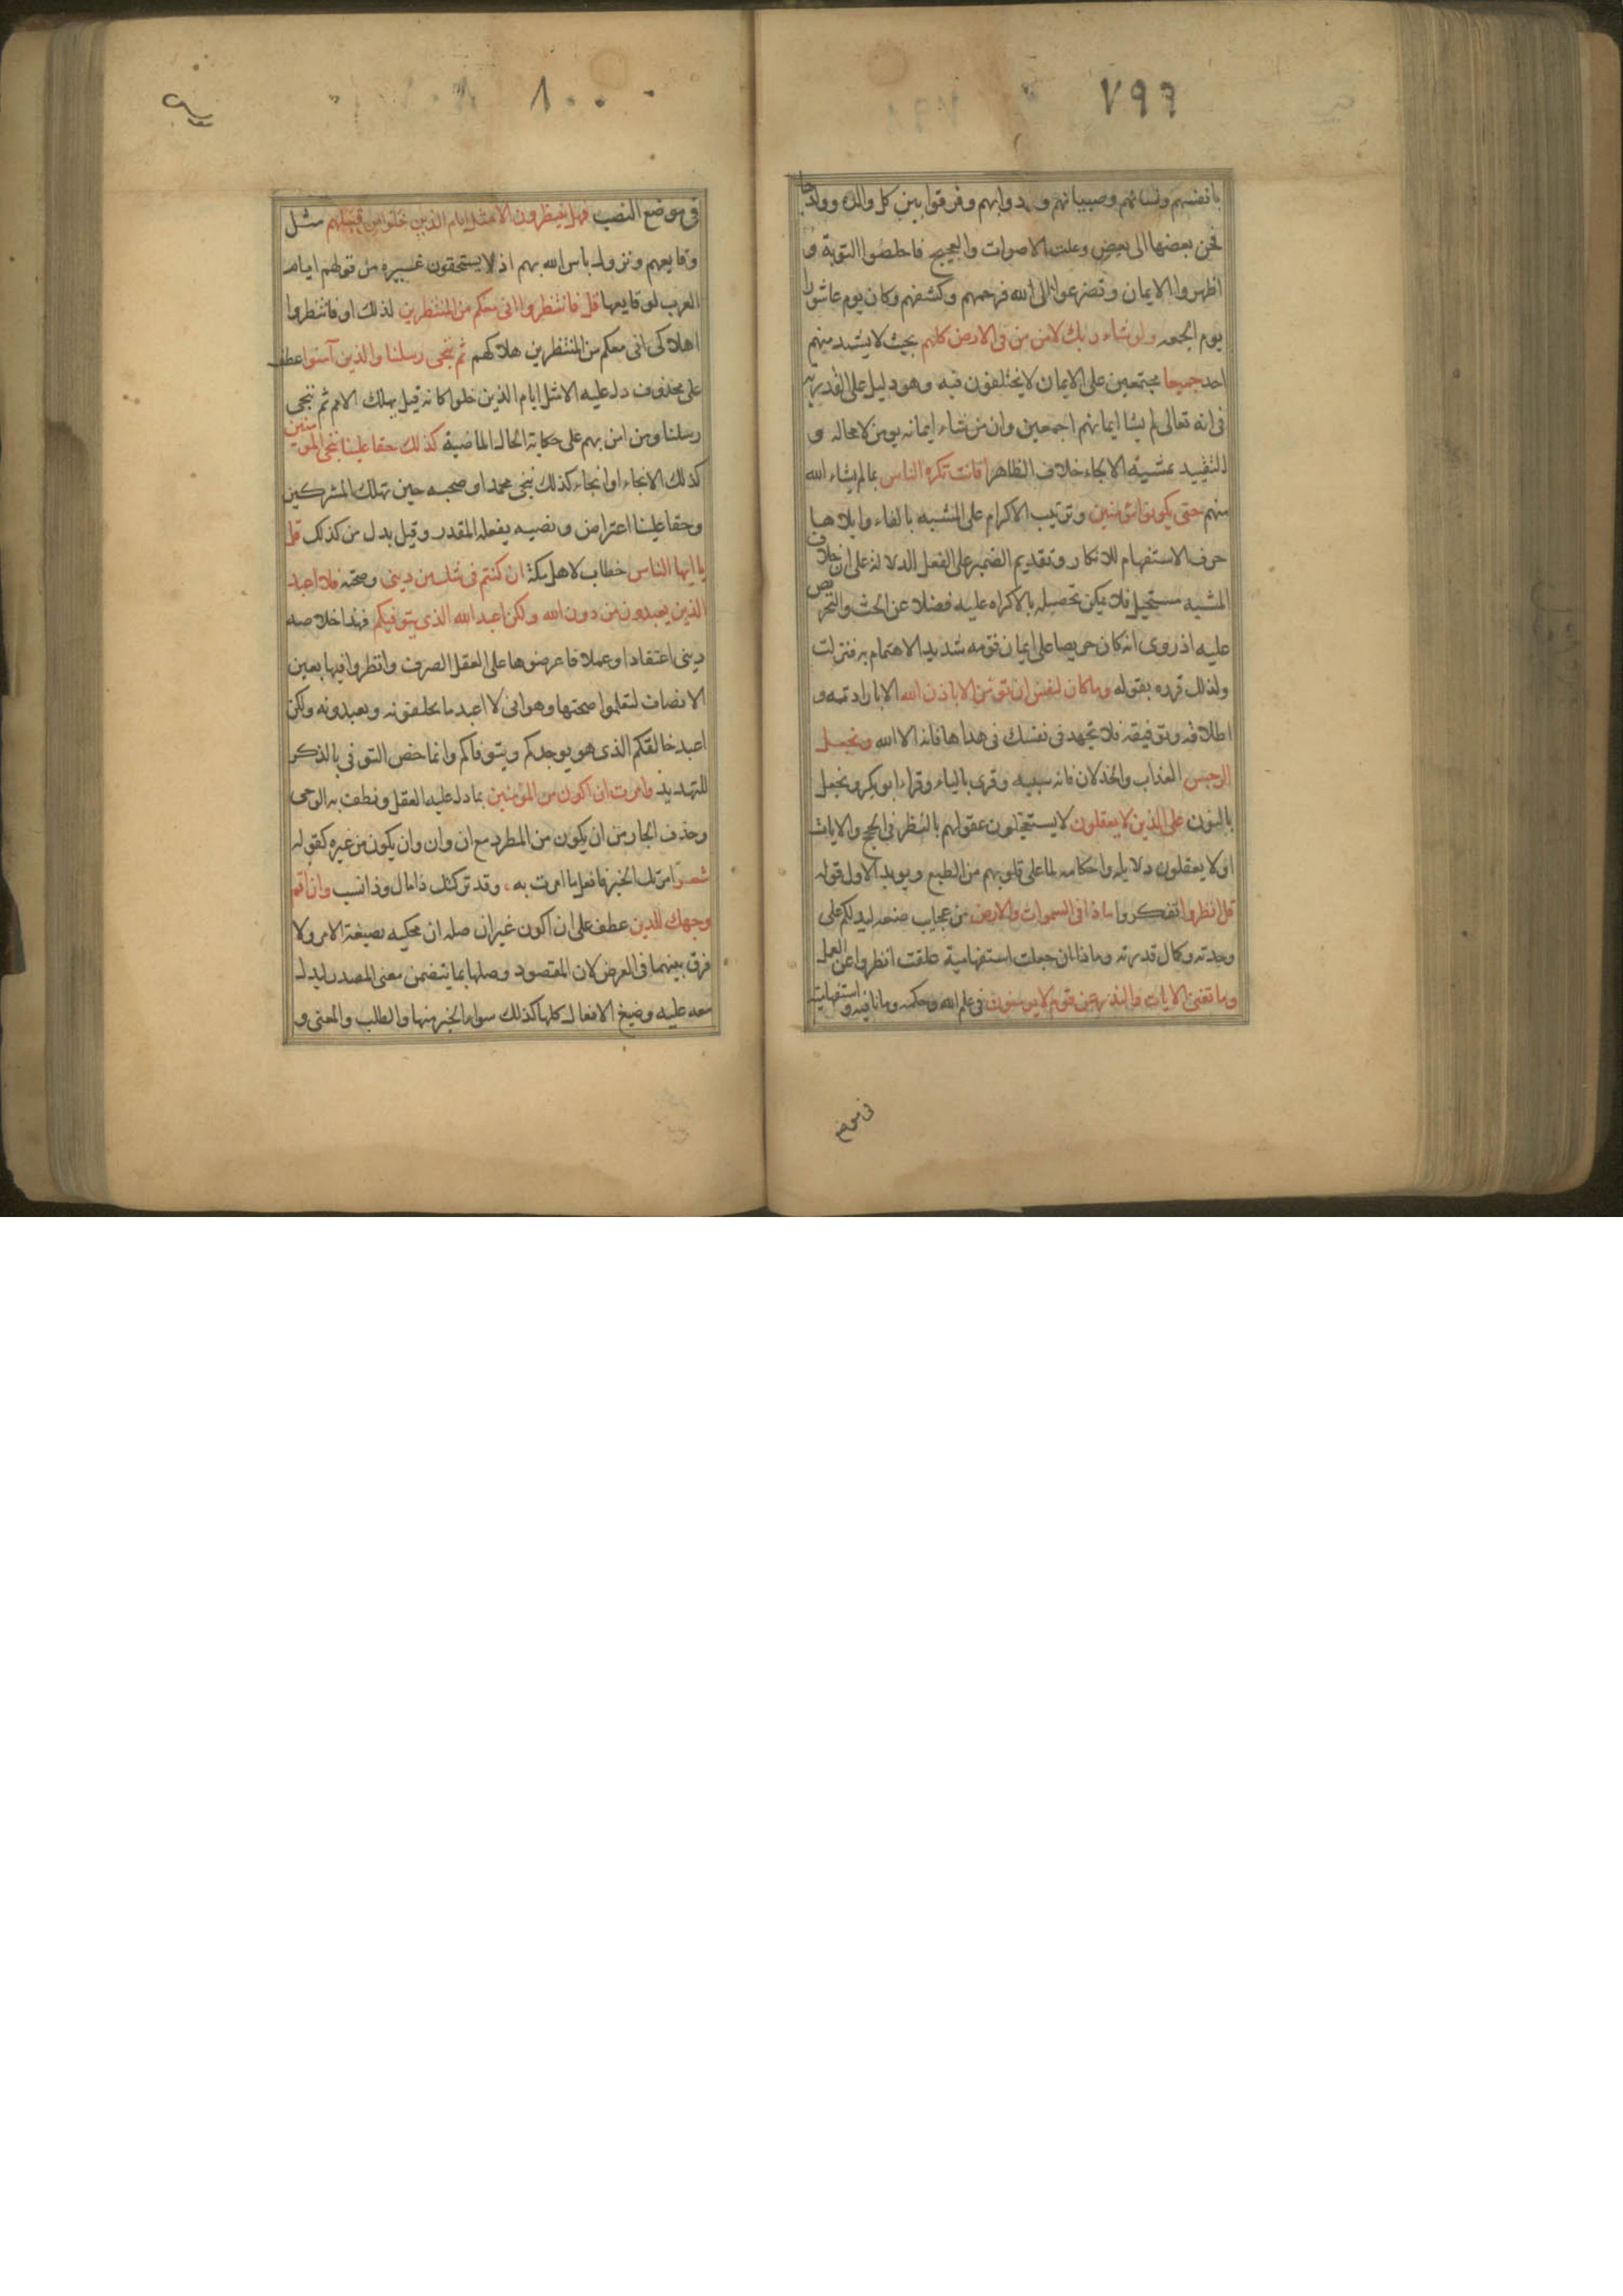 ٧٩٩
بانفسهم ونسائهم وصبيانهم ودوابهم وفرقوا بين كل والدة وولدها
فحن بعضها الى بعض وعلت الاصوات والعجيج فاخلصوا التوبة و
اظهروا الايمان وتضرعوا الى الله فرحمهم وكشفهم وكان يوم عاشورا
يوم الجمعه ولو شاء ربك لامن من فى الارض كلهم بحيث لا يشذ منهم
احد جميعا مجتمعين على الايمان لا يختلفون فيه وهو دليل على القدرية
فى انه تعالى لم يشا ايمانهم اجمعين وان من شاء ايمانه يومن لا محاله و
التقييد بمشية الالجاء خلاف الظاهر افانت تكره الناس بما لم يشاء الله
منهم حتى يكونوا مؤمنين وترتيب الاكرام على المشيه بالفاء وايلاها
حرف الاستفهام للانكار وتقديم الضمير على الفعل الدلالة على ان خلاف
المشيه مستحيل فلا يمكن تحصيله بالاكراه عليه فضلا عن الحث والتحريص
عليه اذ روى انه كان حريصا على ايمان قومه شديد الاهتمام به فنزلت
ولذلك قرره بقوله وما كان لنفس ان تؤمن الا باذن الله الا بارادته و
اطلاقه وتوفيقه فلا تجهد فى نفسك فى هداها فانه الا الله ونجعل
الرجس العذاب والخذلان فانه سببه وقرى بالياء وقراء ابو بكر ونجعل
بالنون على الذين لا يعقلون لا يستعملون عقولهم بالنظر فى الحجج والايات
او لا يعقلون دلايله واحكامه لما على قلوبهم من الطبع ويويد الاول قوله
قل انظروا تفكروا ماذا فى السموات والارض من عجايب صنعه ليدلكم على
وحدته وكمال قدرته وماذا ان جعلت استفهامية علقت انظروا عن العمل
وما تغنى الايات والنذر عن قوم لا يومنون فى علم الله وحكمه وما نافيه و استفهامية
فى موضع
٨٠٠
فى موضع النصب فهل ينتظرون الا مثل ايام الذين خلوا من قبلهم مثل
وقايعهم ونزول باس الله بهم اذ لا يستحقون غيره من قولهم ايام
العرب لوقايعها قل فانتظروا انى معكم من المنتظرين لذلك او فانتظروا
اهلاكى انى معكم من المنتظرين هلاكهم ثم ننجى رسلنا والذين آمنوا عطف
على محذوف دل عليه الا مثل ايام الذين خلوا كانه قيل يهلك الامم ثم ننجى
رسلنا ومن امن بهم على حكاية الحال الماضية كذلك حقا علينا ننجى المومنين
كذلك الانجاء او انجاء كذلك ننجى محمد او صحبه حين نهلك المشركين
وحقا علينا اعتراض ونصبه بفعله المقدر وقيل بدل من كذلك قل
يا ايها الناس خطاب لاهل مكة ان كنتم فى شك من دينى وصحته فلا اعبد
الذين يعبدون من دون الله ولكن اعبد الله الذى يتوفيكم فهذا خلاصه
دينى اعتقادا وعملا فاعرضوها على العقل الصرف وانظروا فيها بعين
الانصاف لتعلموا صحتها وهو انى لا اعبد ما تخلقونه وتعبدونه ولكن
اعبد خالقكم الذى هو يوجدكم ويتوفاكم وانما خص التوفى بالذكر
للتهديد وامرت ان اكون من المؤمنين بما دل عليه العقل ونطق به الوحى
وحذف الجار من ان يكون من المطرد مع ان وان وان يكون من غيره كقوله
شعر امرتك الخير فافعل ما امرت به ، وقد تركتك ذا مال وذا نسب وان اقم
وجهك للدين عطف على ان اكون غير ان صله ان محكيه بصيغة الامر ولا
فرق بينهما فى الغرض لان المقصود وصلها بما يتضمن معنى المصدر ليدل
معه عليه وصيغ الافعال كلها كذلك سواء الخبر منها والطلب والمعنى و